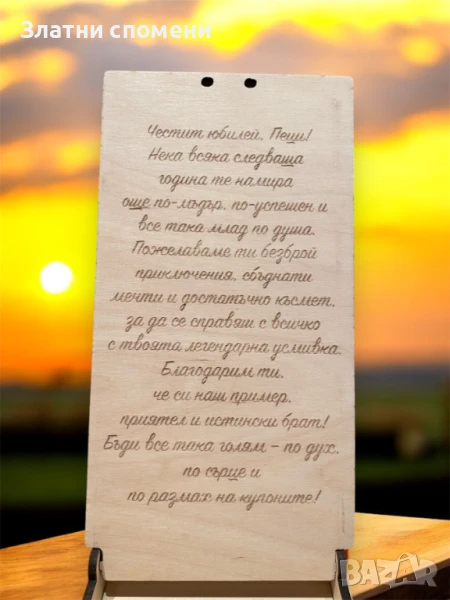 Златни спомени
Честит юбилей, Пеци!
Нека всяка следваща
година те намира
още по-мъдър, по-успешен и
все така млад по душа.
Пожелаваме ти безброй
приключения, сбъднати
мечти и достатъчно късмет,
за да се справят с всичко
с твоята легендарна усмивка.
Благодарим ти,
че си наш пример,
приятел и истински брат!
Бъди все така голям – по дух,
по сърце и
по размах на купоните!
BAZAR